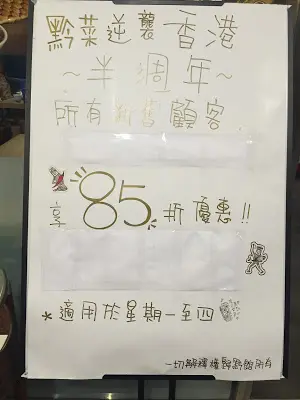 黔菜逆襲香港
~半週年~
所有新舊顧客
享85折優惠!!
*適用於星期一至四
一切解釋權歸黔館所有